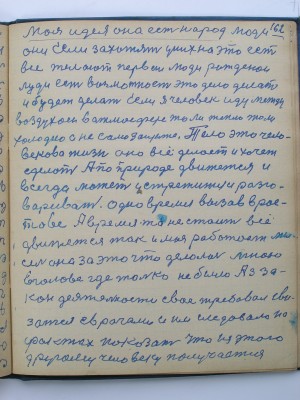 162
Моя идея она ест народ люди
они если захотят у них на это ест
все желают первои люди рожденои
люди ест возможност это дело делат
и будет делат если я человек иду между
воздухом в атмосфере то ли тепло то ли
холодно а не самозащите. Тело это чело-
века жизн оно всё делает и хочет
сделат А по природе движется и
всегда может встретится и разго-
вариват. Одно время вызвав в рос-
тове А время то не стоит всё
двигается так и моя работает мы-
сел она за это что делалос мною
в голове где только не было Аз за-
кон деятелности свое требовал свя-
затся с врачами и им следовало на
фактах показат что из этого
другому человеку получается